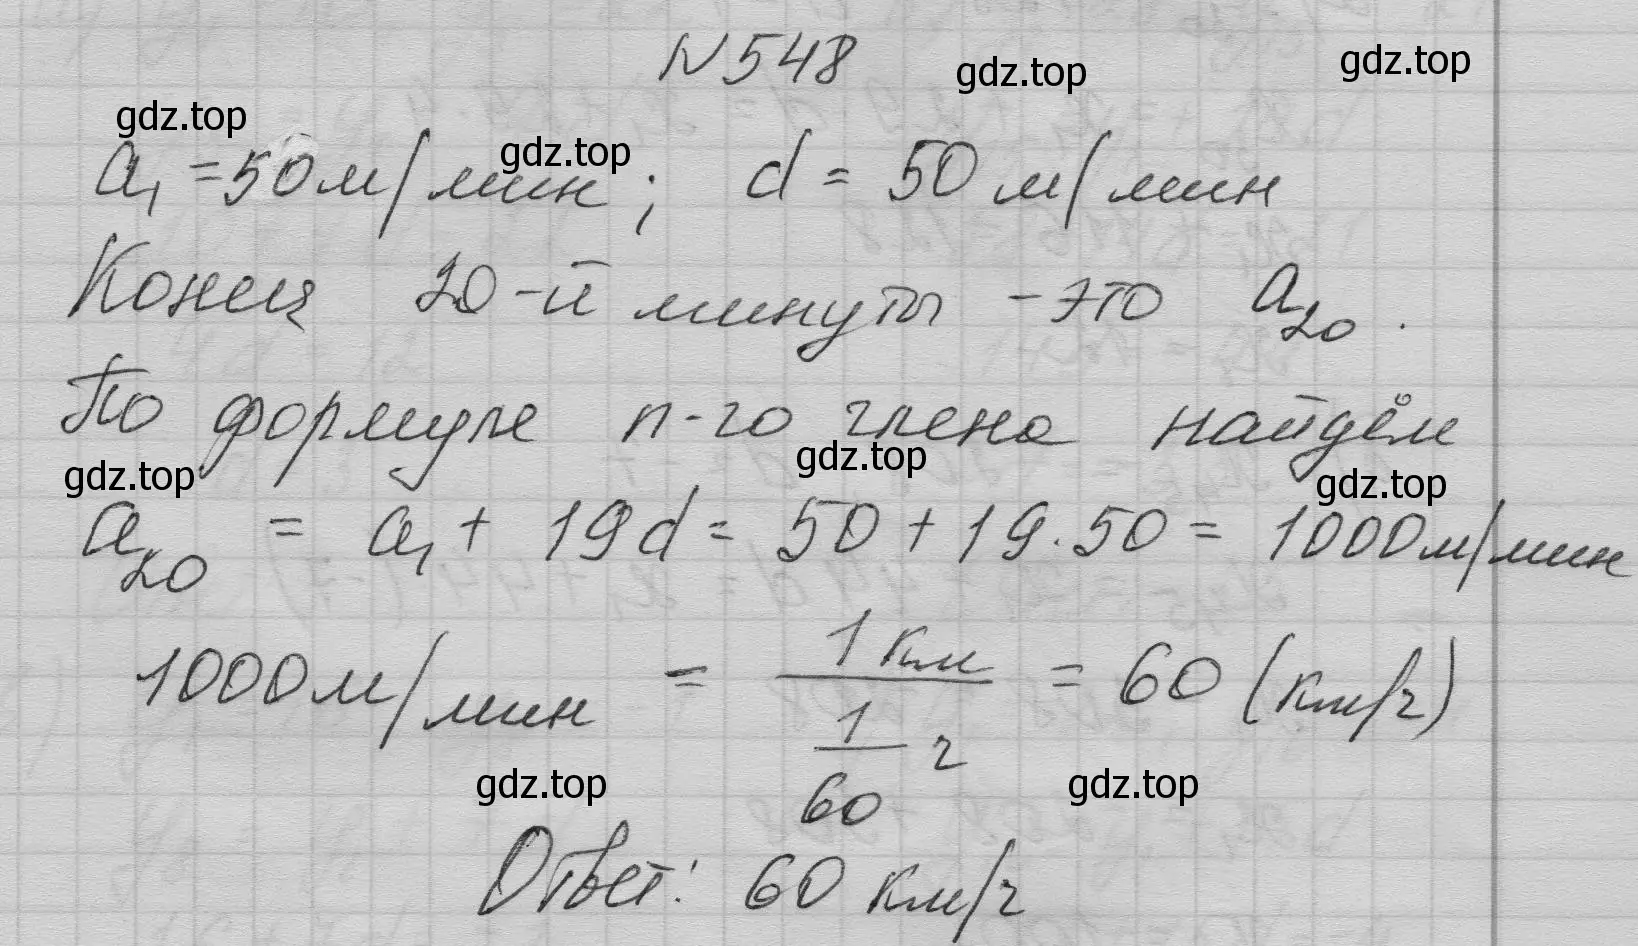 N548
gdz.top
gdz.top
gdz.top
gdz.top
a₁ = 50 м/мин; d = 50 м/мин
Конец 20-й минуты - это a₂₀.
По формуле n-го члена найдём
gdz.top
gdz.top
gdz.top
a₂₀ = a₁ + 19d = 50 + 19·50 = 1000 м/мин
1000 м/мин = 1 км / (1/60 ч) = 60 (км/ч)
gdz.top
gdz.top
Ответ: 60 км/ч